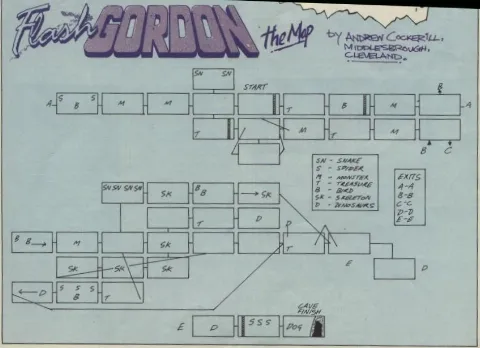 Flash GORDON the Map
by ANDREW COCKERILL,
MIDDLESBROUGH,
CLEVELAND.
SN SN
START
B
A S B S M M T B M A
T M T M
B C
SN - SNAKE
S - SPYDER
M - MONSTER
T - TREASURE
B - BIRD
SK - SKELETON
D - DINOSAURS
EXITS
A-A
B-B
C-C
D-D
E-E
SN SN SN SN SK B B → SK
SK T D D
B B → M SK T
E D
SK SK SK
← D S S S B T
CAVE
FINISH
E D S S S DOG